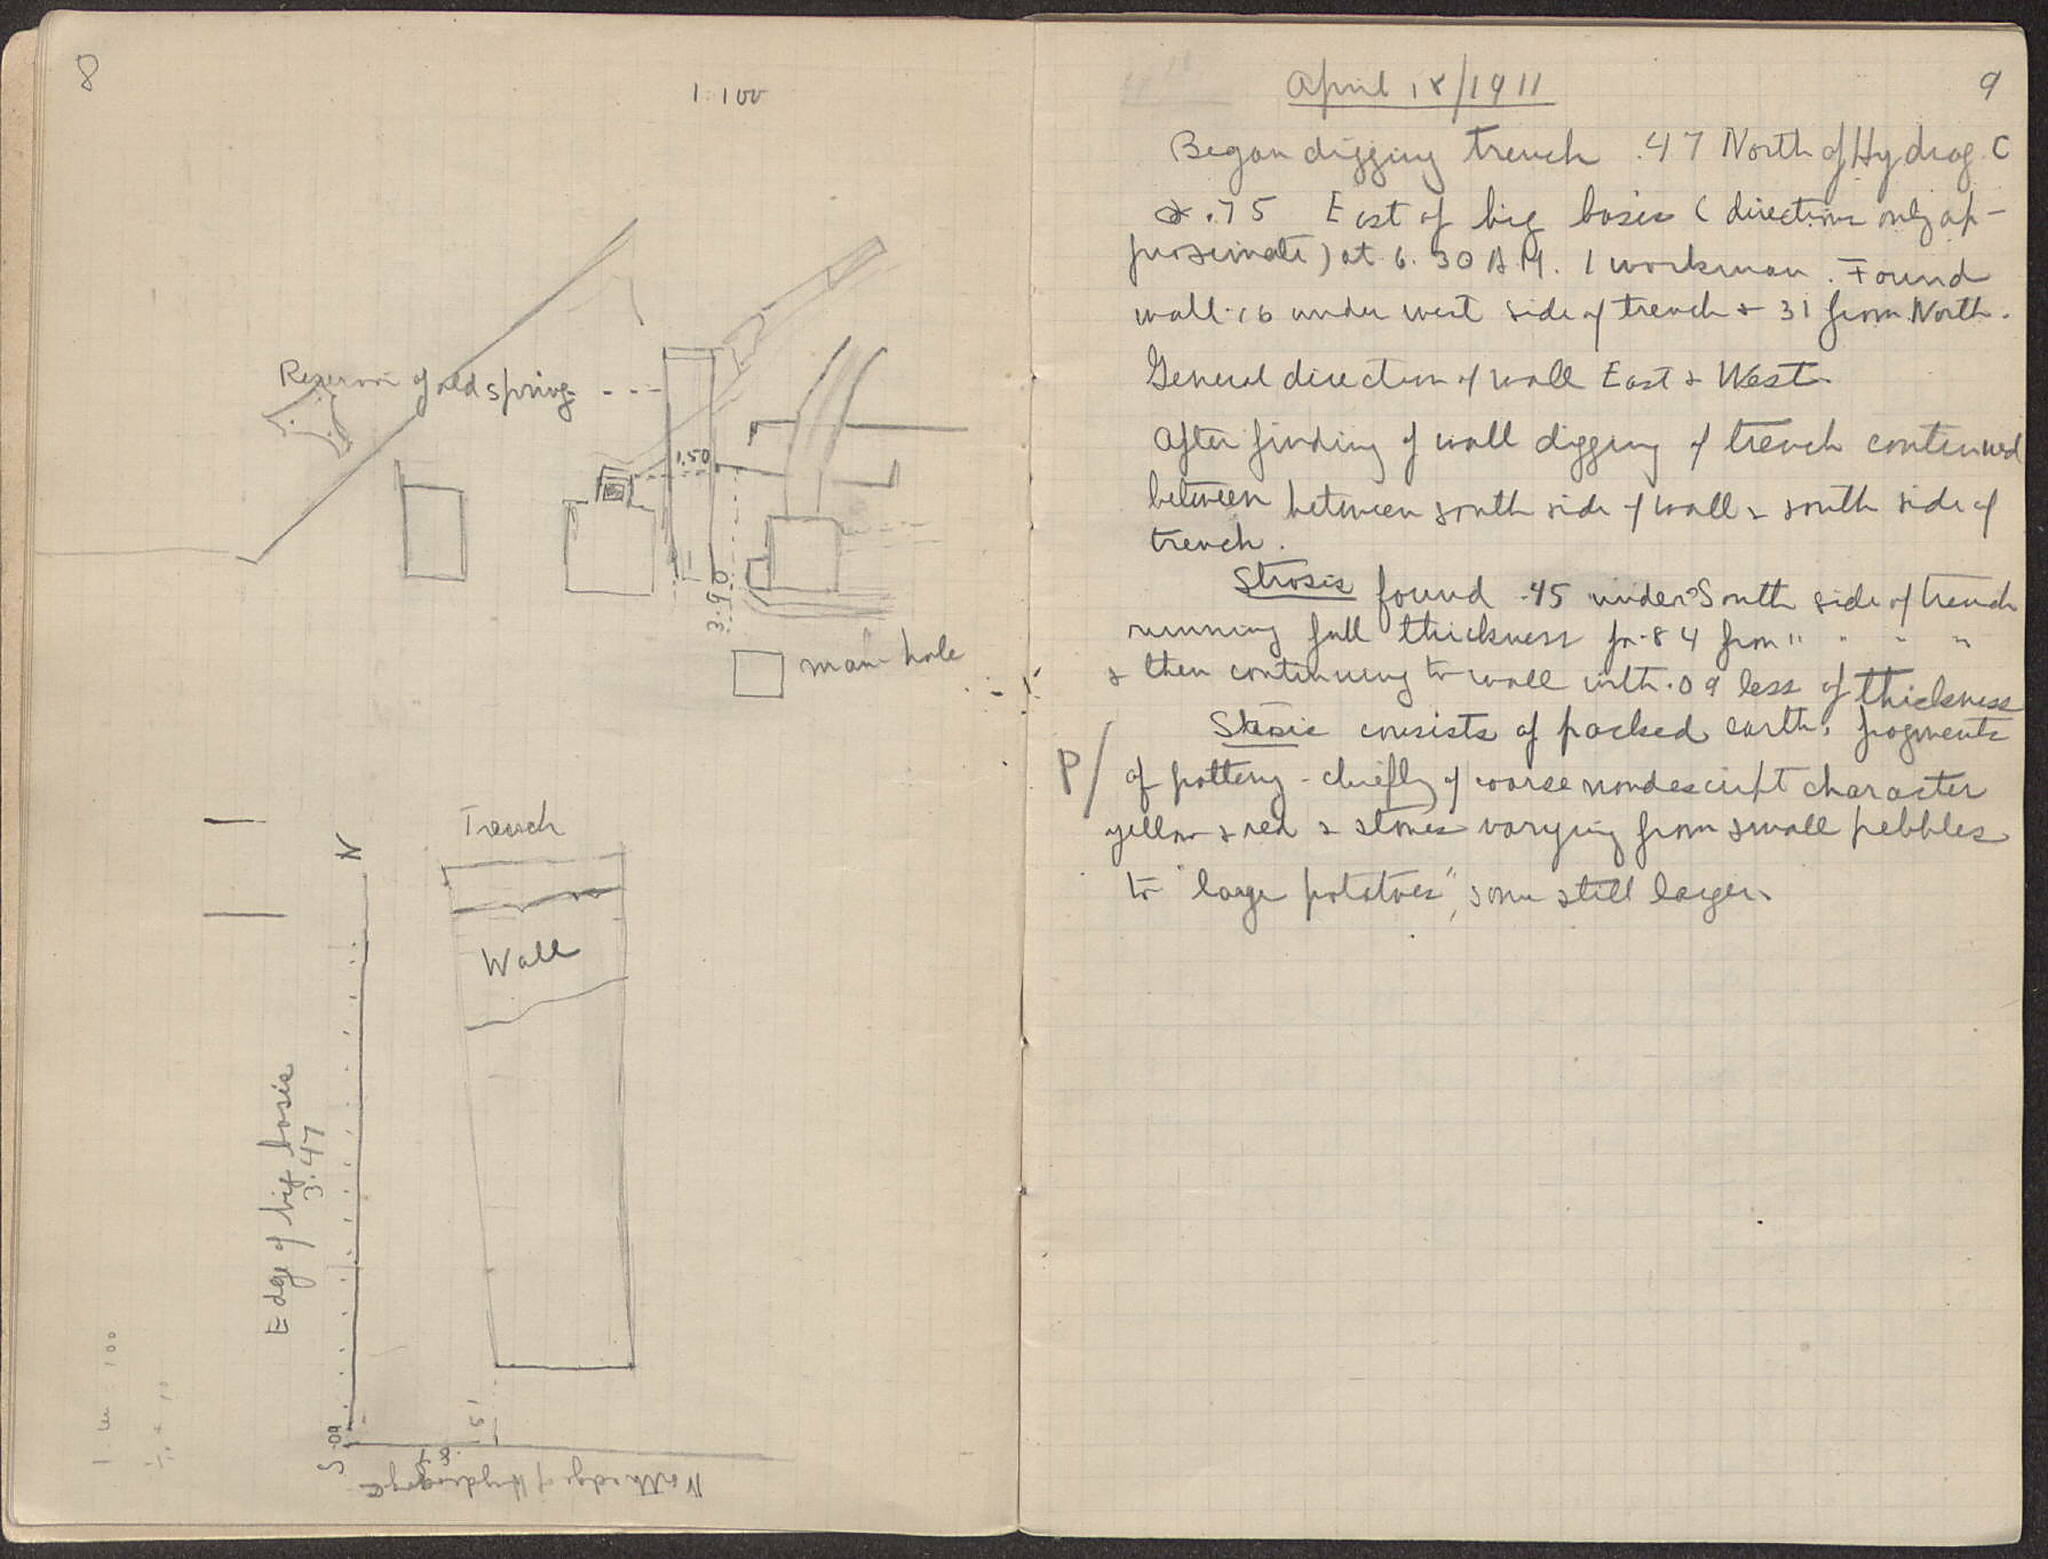 8
1:100
Reservoir of old spring
1.50
3.90
man hole
Trench
N
Wall
Edge of big basis
3.47
1 cm = 100
S
.09
.51
North edge of Hydrag. C
9
April 18/1911
Began digging trench .47 North of Hydrag. C
& .75 East of big basis (directions only ap-
proximate) at 6.30 A.M. 1 workman. Found
wall .16 under west side of trench & 31 from North.
General direction of wall East & West.
After finding of wall digging of trench continued
between between south side of wall & south side of
trench.
Strosis found .45 under South side of trench
running full thickness for .84 from " " " "
& then continuing to wall with .09 less of thickness
Strosis consists of packed earth, fragments
P/ of pottery - chiefly of coarse nondescript character
yellow & red & stones varying from small pebbles
to "large potatoes", some still larger.